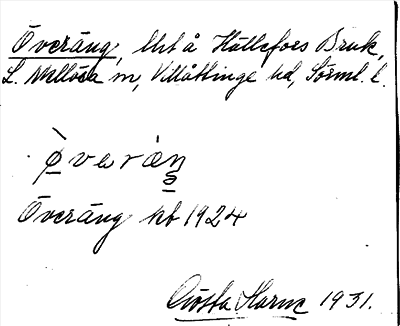 Överäng, lht å Hälleforss Bruk,
L. Mellösa sn, Villåttinge hd, Sörml. l.
ø̀verä̀ŋ
Överäng kb 1924
Gösta Harne 1931.